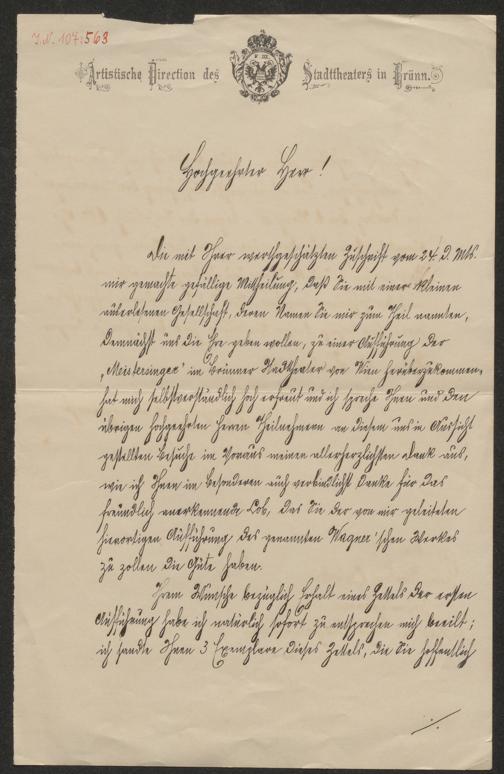 J.N. 107.563
Artistische Direction des Stadttheaters in Brünn.
Hochgeehrter Herr!
Die mit Ihrer werthgeschätzten Zuschrift vom 24. d. Mts.
mir gemachte gefällige Mittheilung, daß Sie mit einer kleinen
auserlesenen Gesellschaft, deren Namen Sie mir zum Theil nannten,
demnächst uns die Ehre geben wollen, zu einer Aufführung der
„Meistersinger“ im Brünner Stadttheater von Wien herüberzukommen,
hat mich selbstverständlich hoch erfreut und ich spreche Ihnen und den
übrigen hochgeehrten Herren Theilnehmern an diesem uns in Aussicht
gestellten Besuche im Voraus meinen allerherzlichsten Dank aus,
wie ich Ihnen im besonderen auch verbindlichst danke für das
freundlich anerkennende Lob, das Sie der von mir geleiteten
hierortigen Aufführung des genannten Wagner'schen Werkes
zu zollen die Güte haben.
Ihrem Wunsche bezüglich Erhalt eines Zettels der ersten
Aufführung habe ich natürlich sofort zu entsprechen mich beeilt;
ich sandte Ihnen 3 Exemplare dieses Zettels, die Sie hoffentlich
./.